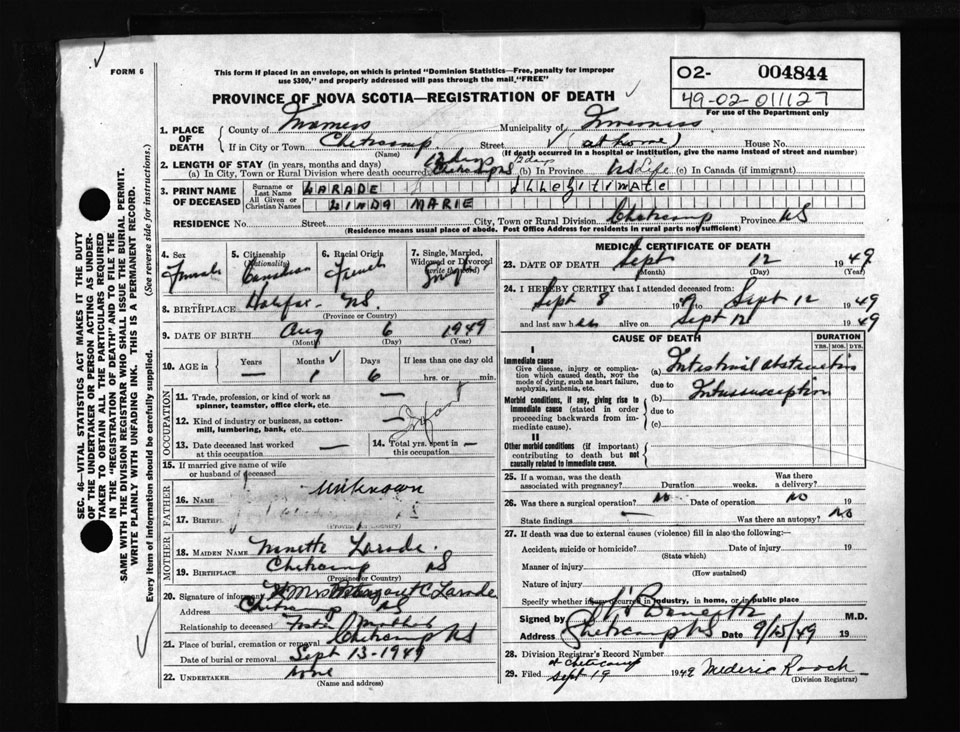 FORM 6
This form if placed in an envelope, on which is printed "Dominion Statistics—Free, penalty for improper
use $300," and properly addressed will pass through the mail "FREE"
O2- 004844
49-02-011127
For use of the Department only
PROVINCE OF NOVA SCOTIA—REGISTRATION OF DEATH
1. PLACE OF DEATH
County of Inverness Municipality of Inverness
If in City or Town Cheticamp Street (at home) House No.
(Name) (If death occurred in a hospital or institution, give the name instead of street and number)
2. LENGTH OF STAY (in years, months and days)
(a) In City, Town or Rural Division where death occurred 12 days Cheticamp NS (b) In Province 12 days NS Life (c) In Canada (if immigrant)
3. PRINT NAME OF DECEASED
Surname or Last Name LARADE ILLEGITIMATE
All Given or Christian Names LINDA MARIE
RESIDENCE No. Street City, Town or Rural Division Cheticamp Province NS
(Residence means usual place of abode. Post Office Address for residents in rural parts not sufficient)
4. Sex Female
5. Citizenship (Nationality) Canadian
6. Racial Origin French
7. Single, Married, Widowed or Divorced (write the word) Single
8. BIRTHPLACE Halifax NS
(Province or Country)
9. DATE OF BIRTH Aug 6 1949
(Month) (Day) (Year)
10. AGE in Years Months Days If less than one day old
— 1 6 hrs. or min.
OCCUPATION
11. Trade, profession, or kind of work as spinner, teamster, office clerk, etc. —
12. Kind of industry or business, as cotton-mill, lumbering, bank, etc. —
Infant
13. Date deceased last worked at this occupation —
14. Total yrs. spent in this occupation —
15. If married give name of wife or husband of deceased
FATHER
16. NAME Unknown
17. BIRTHPL
(Province or Country)
MOTHER
18. MAIDEN NAME Nanette Larade
19. BIRTHPLACE Cheticamp NS
(Province or Country)
20. Signature of informant Mrs Margaret C Larade
Address Cheticamp NS
Relationship to deceased Foster Mother
21. Place of burial, cremation or removal Cheticamp NS
Date of burial or removal Sept 13-1949
22. UNDERTAKER None
(Name and address)
MEDICAL CERTIFICATE OF DEATH
23. DATE OF DEATH Sept 12 1949
(Month) (Day) (Year)
24. I HEREBY CERTIFY that I attended deceased from:
Sept 8 19 to Sept 12 1949
and last saw her alive on Sept 12 1949
CAUSE OF DEATH
DURATION
YRS. MOS. DYS.
I
Immediate cause
Give disease, injury or complication which caused death, NOT the mode of dying, such as heart failure, asphyxia, asthenia, etc.
(a) Intestinal obstruction
due to
Morbid conditions, if any, giving rise to immediate cause (stated in order proceeding backwards from immediate cause).
(b) Intussusception
due to
(c)
II
Other morbid conditions (if important) contributing to death but not causally related to immediate cause.
25. If a woman, was the death associated with pregnancy? Duration weeks. Was there a delivery?
26. Was there a surgical operation? No Date of operation No 19
State findings — Was there an autopsy? No
27. If death was due to external causes (violence) fill in also the following:
Accident, suicide or homicide? Date of injury 19
(State which)
Manner of injury
(How sustained)
Nature of injury
Specify whether injury occurred in industry, in home, or in public place
Signed by M.D.
Address Cheticamp NS Date 9/15/49 19
28. Division Registrar's Record Number
at Cheticamp
29. Filed Sept 19 1949 Mederic Roach
(Division Registrar)
SEC. 46—VITAL STATISTICS ACT MAKES IT THE DUTY
OF THE UNDERTAKER OR PERSON ACTING AS UNDER-
TAKER TO OBTAIN ALL THE PARTICULARS REQUIRED
IN THE "REGISTRATION OF DEATH" AND TO FILE THE
SAME WITH THE DIVISION REGISTRAR WHO SHALL ISSUE THE BURIAL PERMIT.
WRITE PLAINLY WITH UNFADING INK. THIS IS A PERMANENT RECORD.
Every item of information should be carefully supplied. (See reverse side for instructions.)